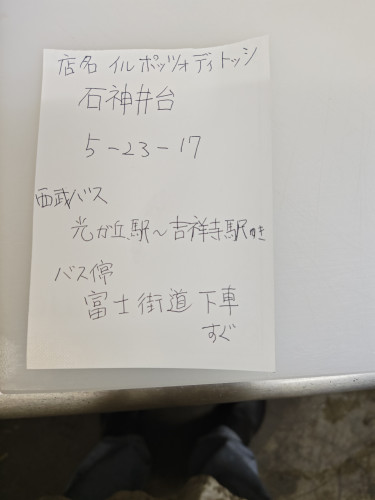 店名 イル ポッツォ ディ トッシ
石神井台
5-23-17
西武バス
光が丘駅〜吉祥寺駅ゆき
バス停
富士街道 下車
すぐ